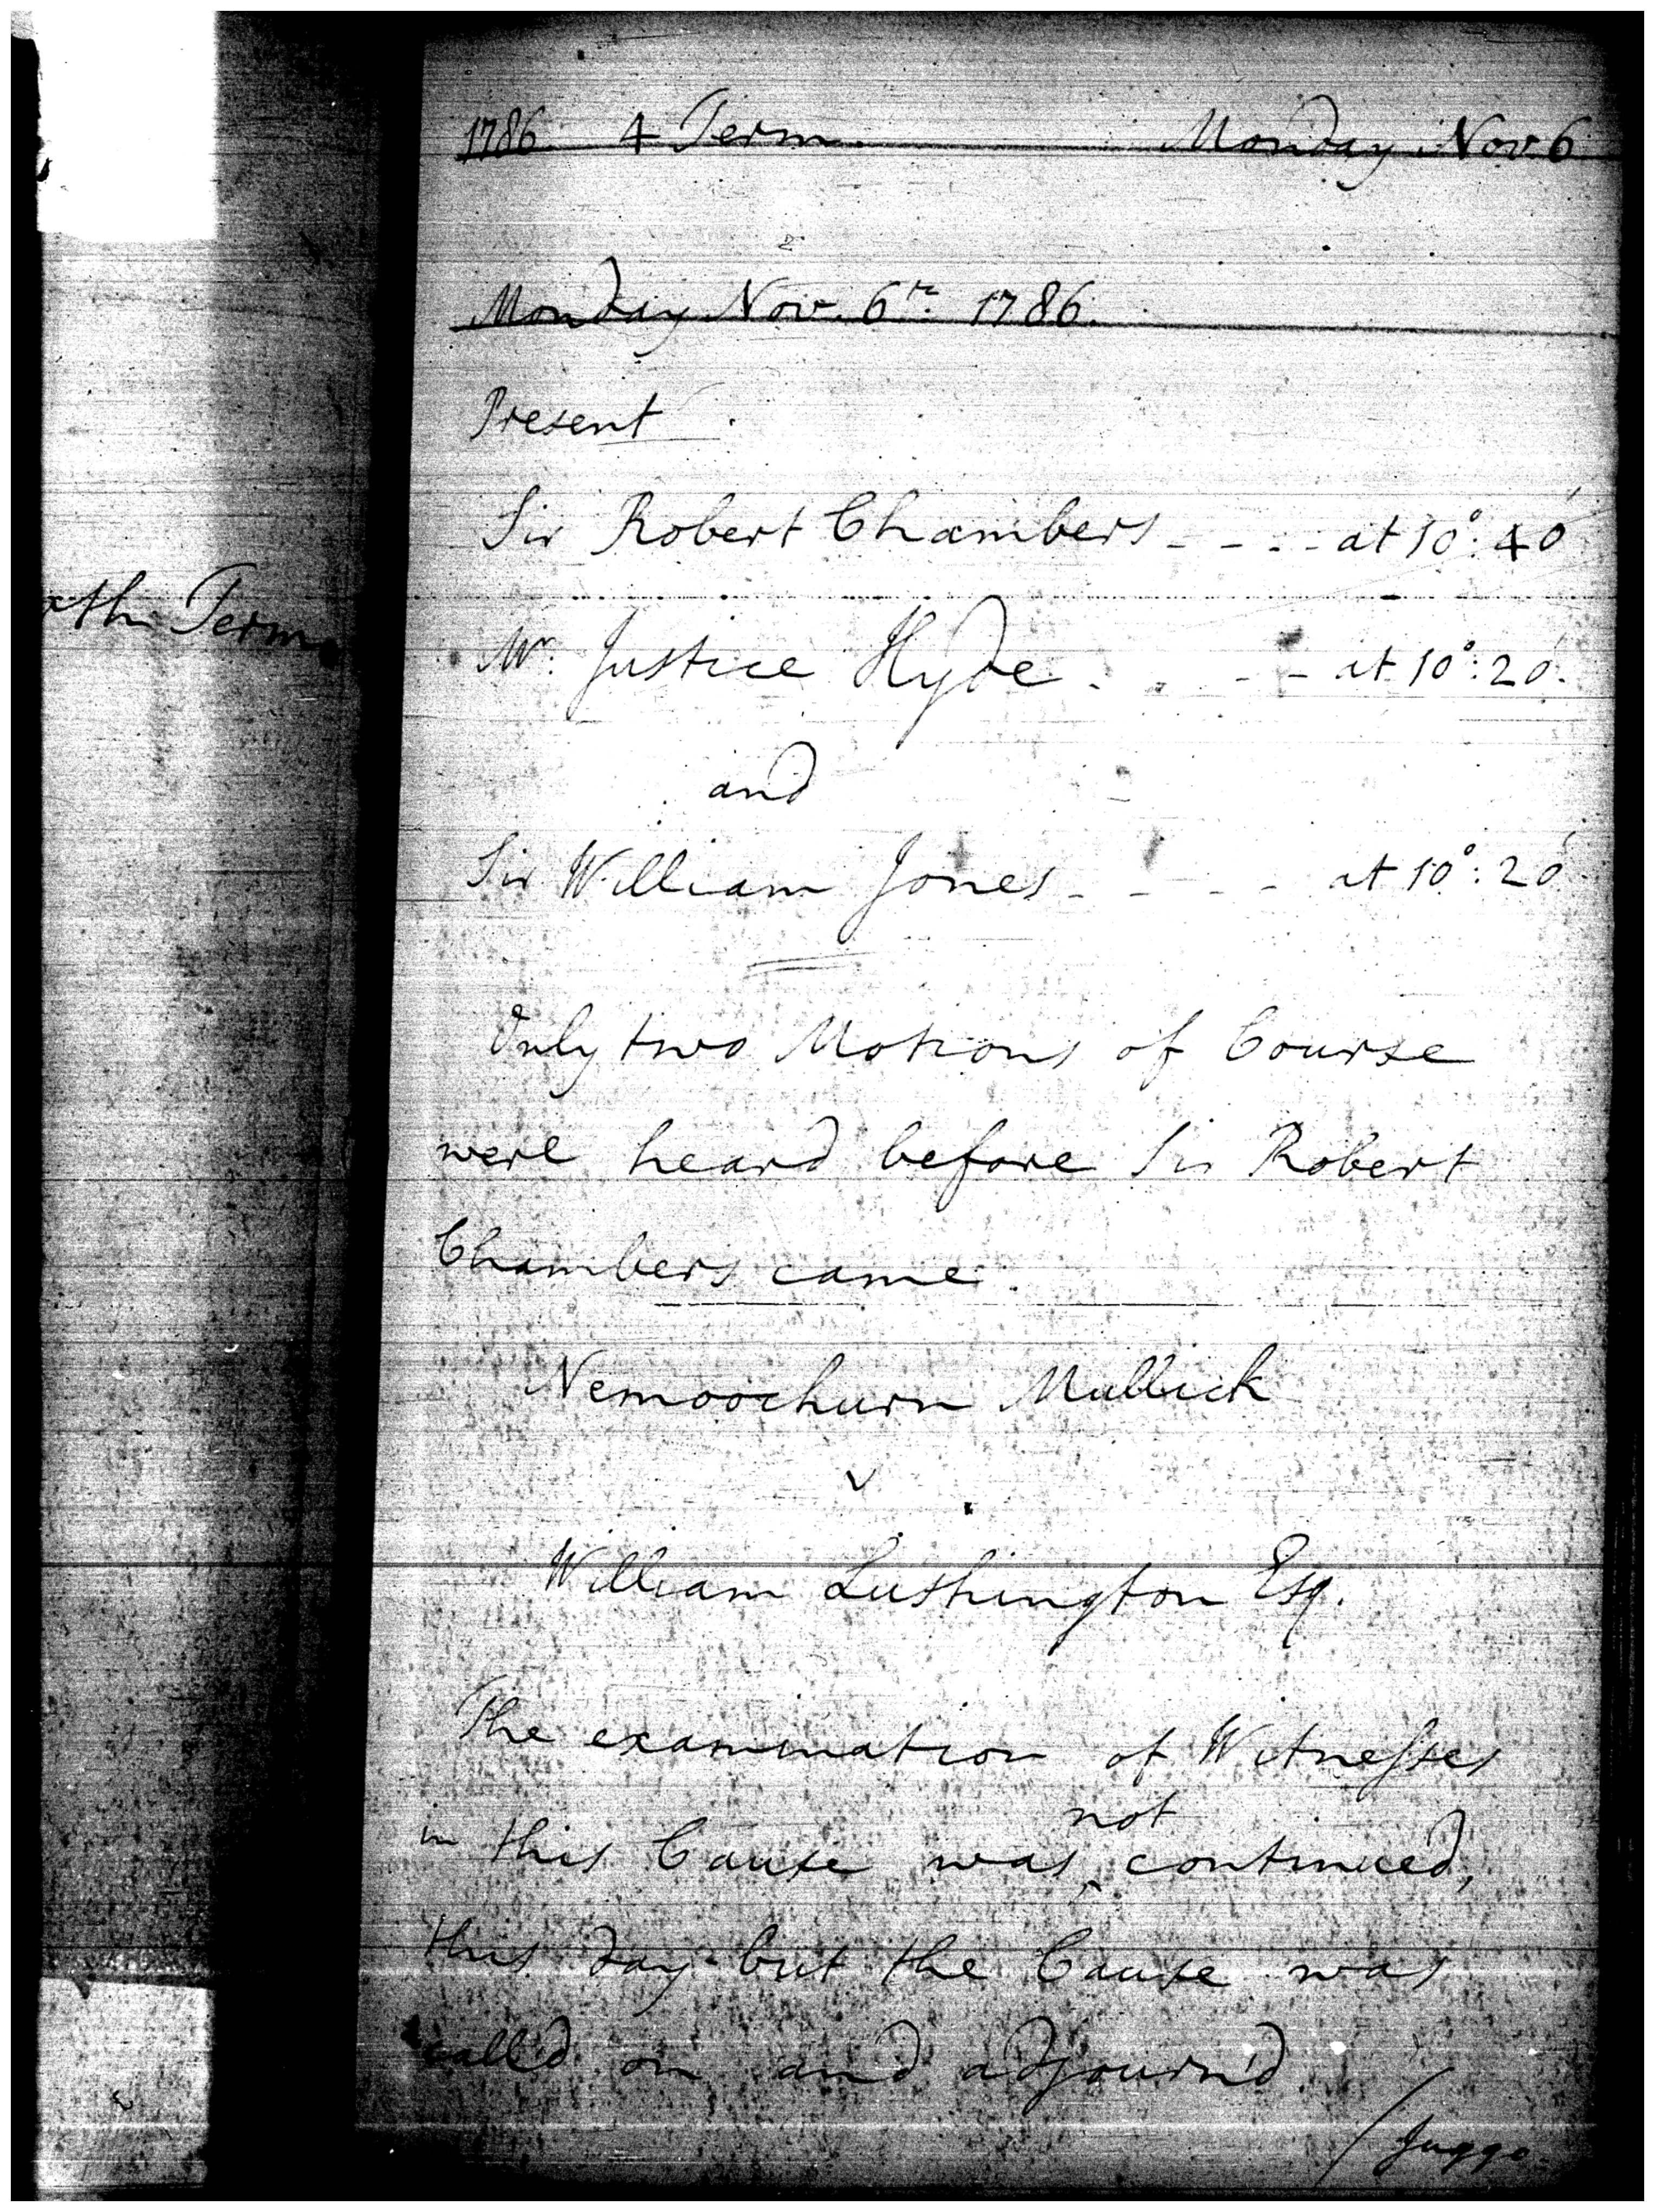 1786. 4 Term. Monday Nov. 6
Monday Nov. 6th 1786.
Present
Sir Robert Chambers - - - - at 10°: 40'
th Term
Mr. Justice Hyde. - - - at 10°: 20'.
and
Sir William Jones - - - - at 10°: 20'
Only two Motions of Course
were heard before Sir Robert
Chambers came.
Nemoochurn Mullick
v
William Lushington Esq.
The examination of Witnesses
not
in this Cause was ^ continued,
this day but the Cause was
call'd on and adjourn'd.
/ Juggo